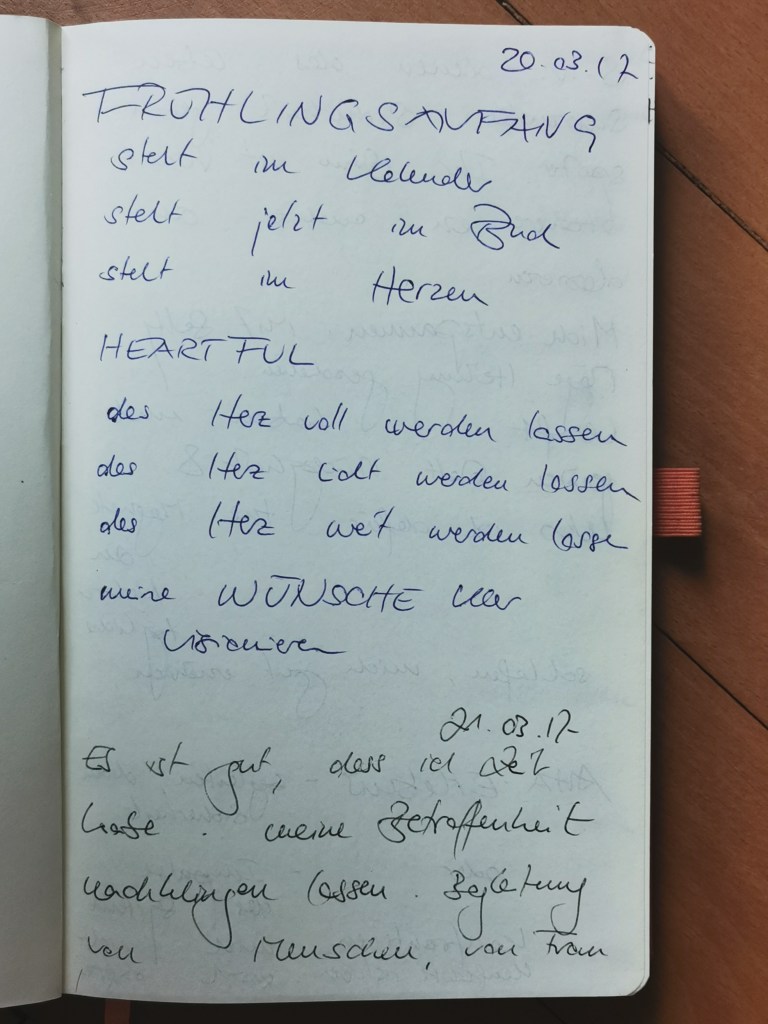 20.03.17
FRÜHLINGSANFANG
steht im Kalender
steht jetzt im Buch
steht im Herzen
HEARTFUL
das Herz voll werden lassen
das Herz licht werden lassen
das Herz weit werden lasse
meine WÜNSCHE klar
visionieren
21.03.17
Es ist gut, dass ich Zeit
habe. meine Betroffenheit
nachklingen lassen. Begleitung
von Menschen, von Frau